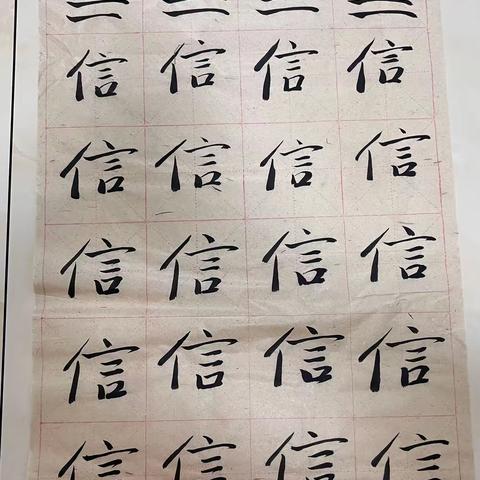 信信信信
信信信信
信信信信
信信信信
信信信信